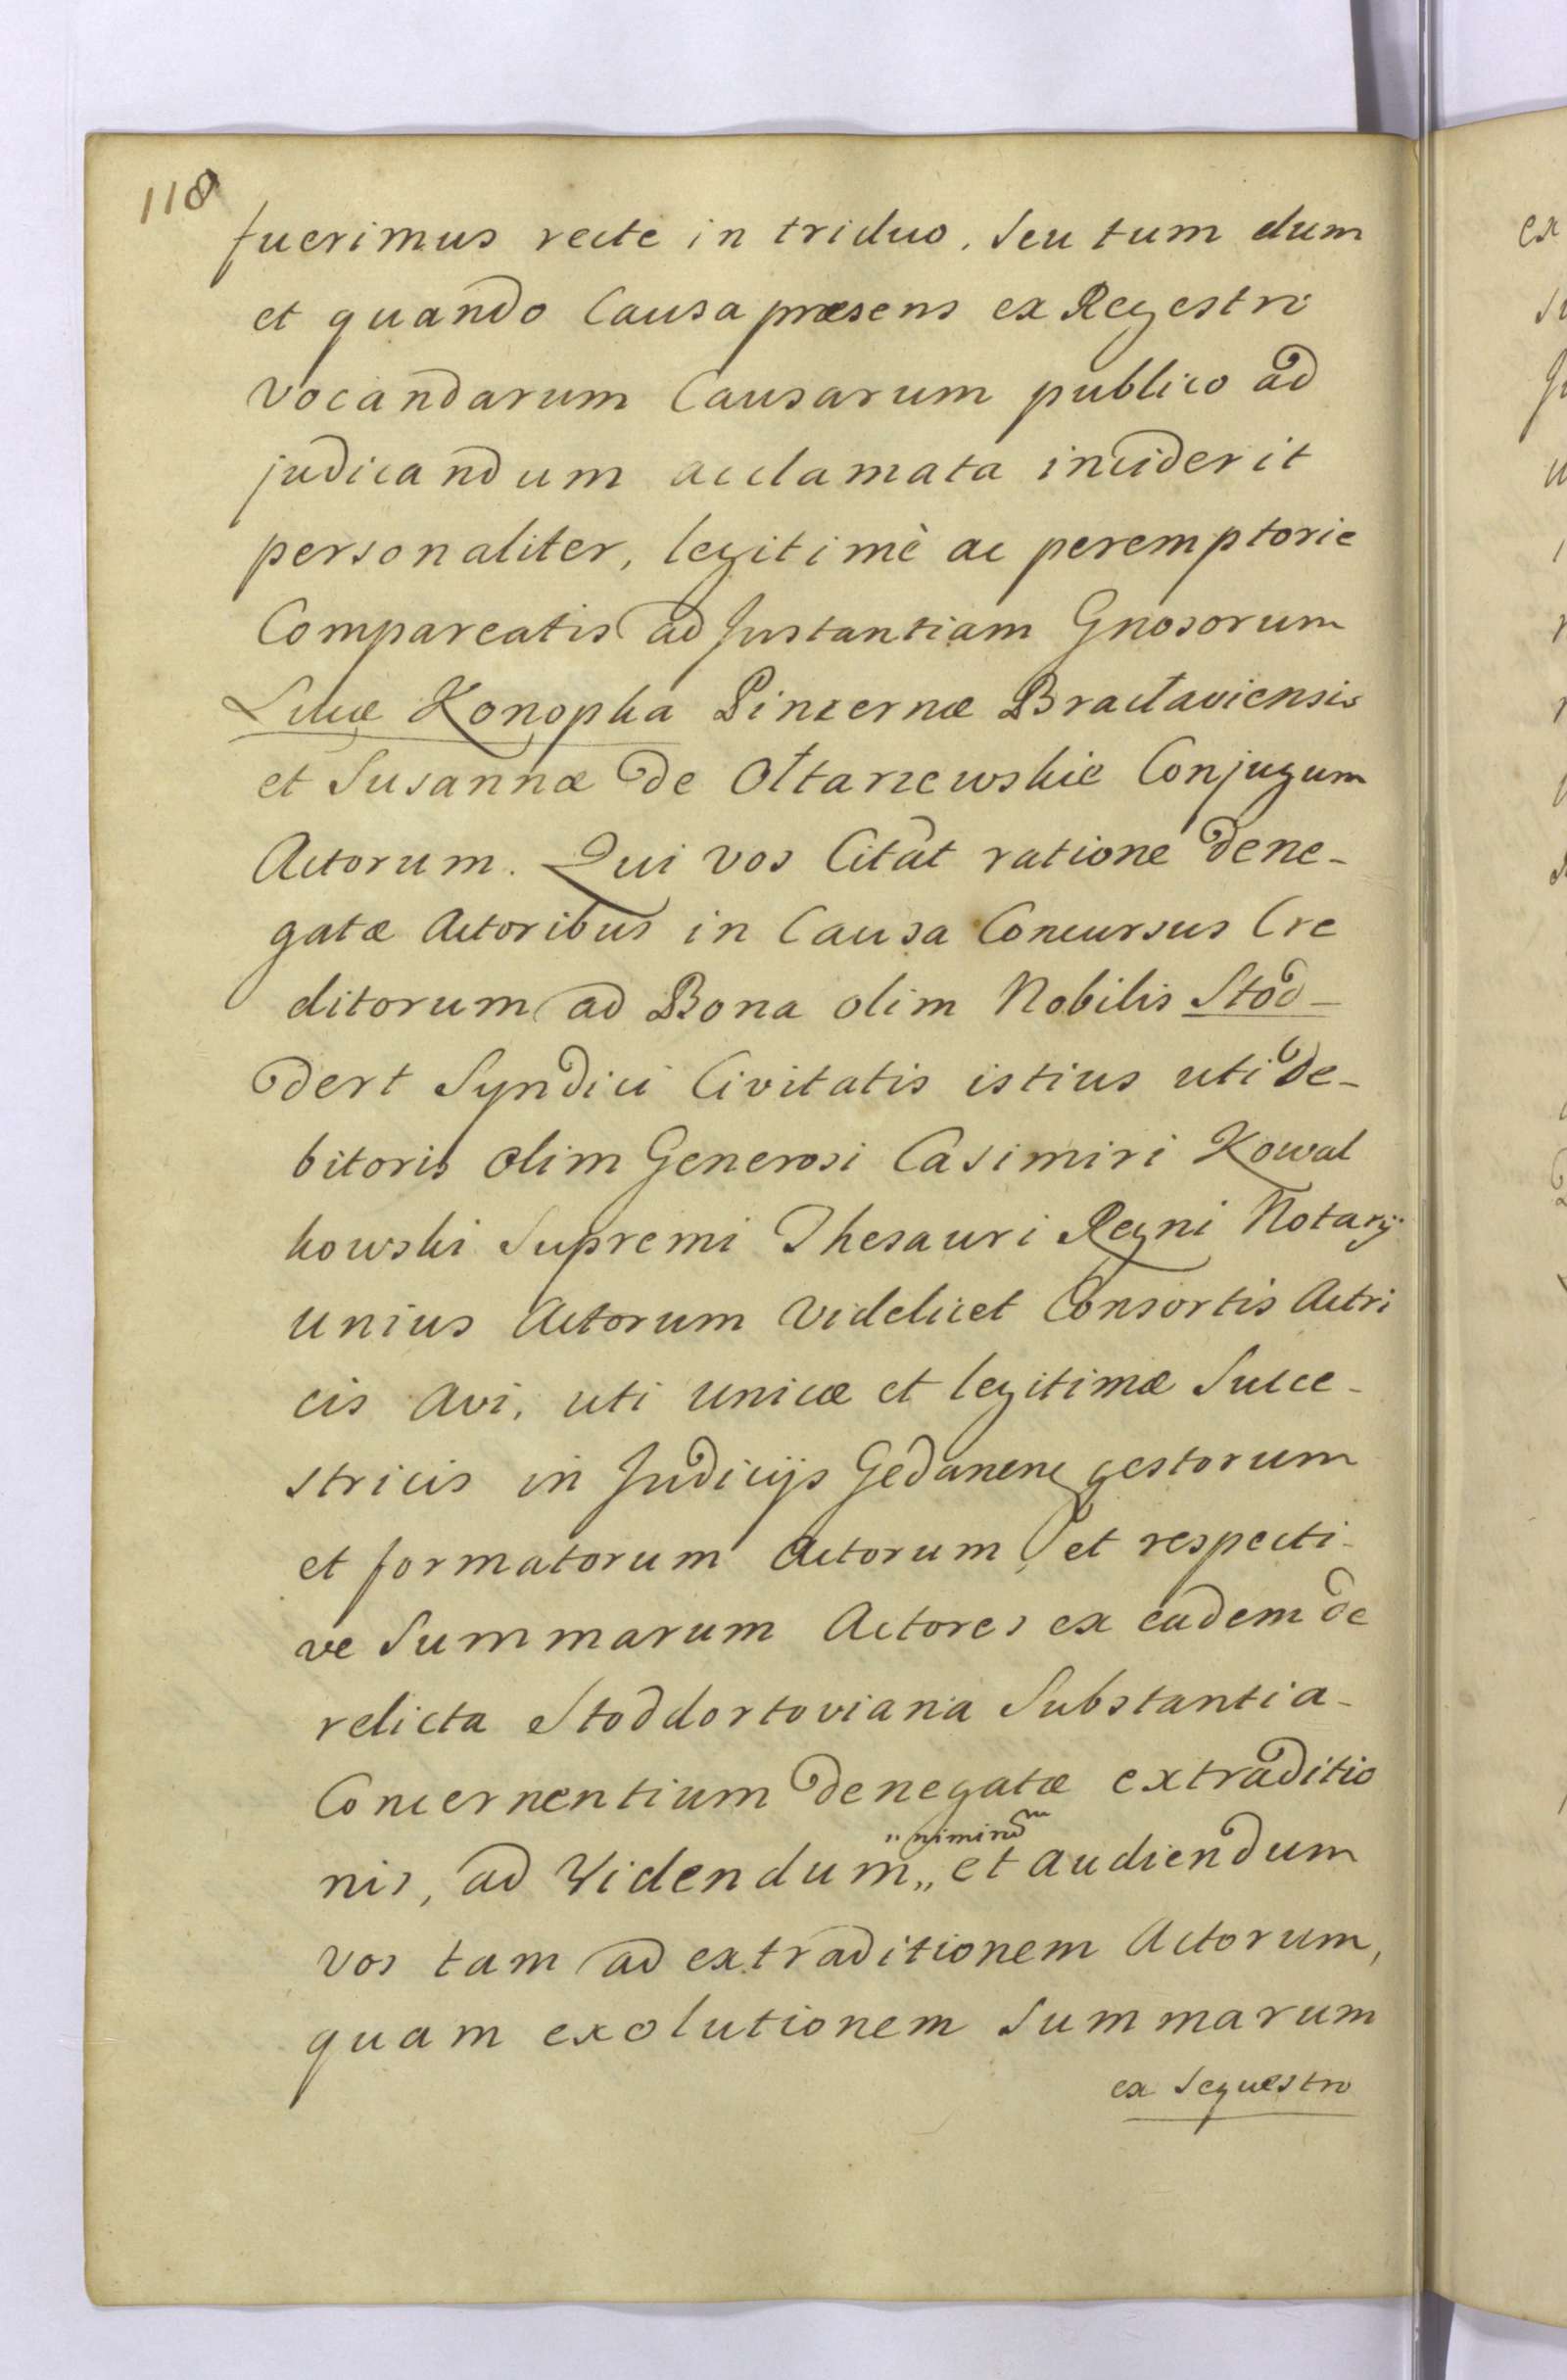 118
fuerimus recte in triduo, seu tum dum
et quando Causa præsens ex Regestro
vocandarum Causarum publico ad
judicandum acclamata inciderit
personaliter, legitimè ac peremptorie
Compareatis ad Instantiam Gnosorum
Lucæ Konopka Pincernæ Bracłaviensis
et Susannæ de Ołtarzewskie Conjugum
Actorum. Qui vos Citat ratione dene-
gatæ Actoribus in Causa Concursus Cre
ditorum ad Bona olim Nobilis Stod-
dert Syndici Civitatis istius uti de-
bitoris olim Generosi Casimiri Kowal
kowski Supremi Thesauri Regni Notarij
unius Actorum videlicet Consortis Actri
cis Avi, uti unicæ et legitimæ Succe-
stricis in Judicijs Gedanen gestorum
et formatorum Actorum, et respecti-
ve Summarum Actores ex eadem de
relicta Stoddortoviana Substantia-
Concernentium denegatæ extraditio
„ nimirum
nis, ad Videndum „ et audiendum
vos tam ad extraditionem Actorum,
quam exolutionem Summarum
ex Sequestro
ex